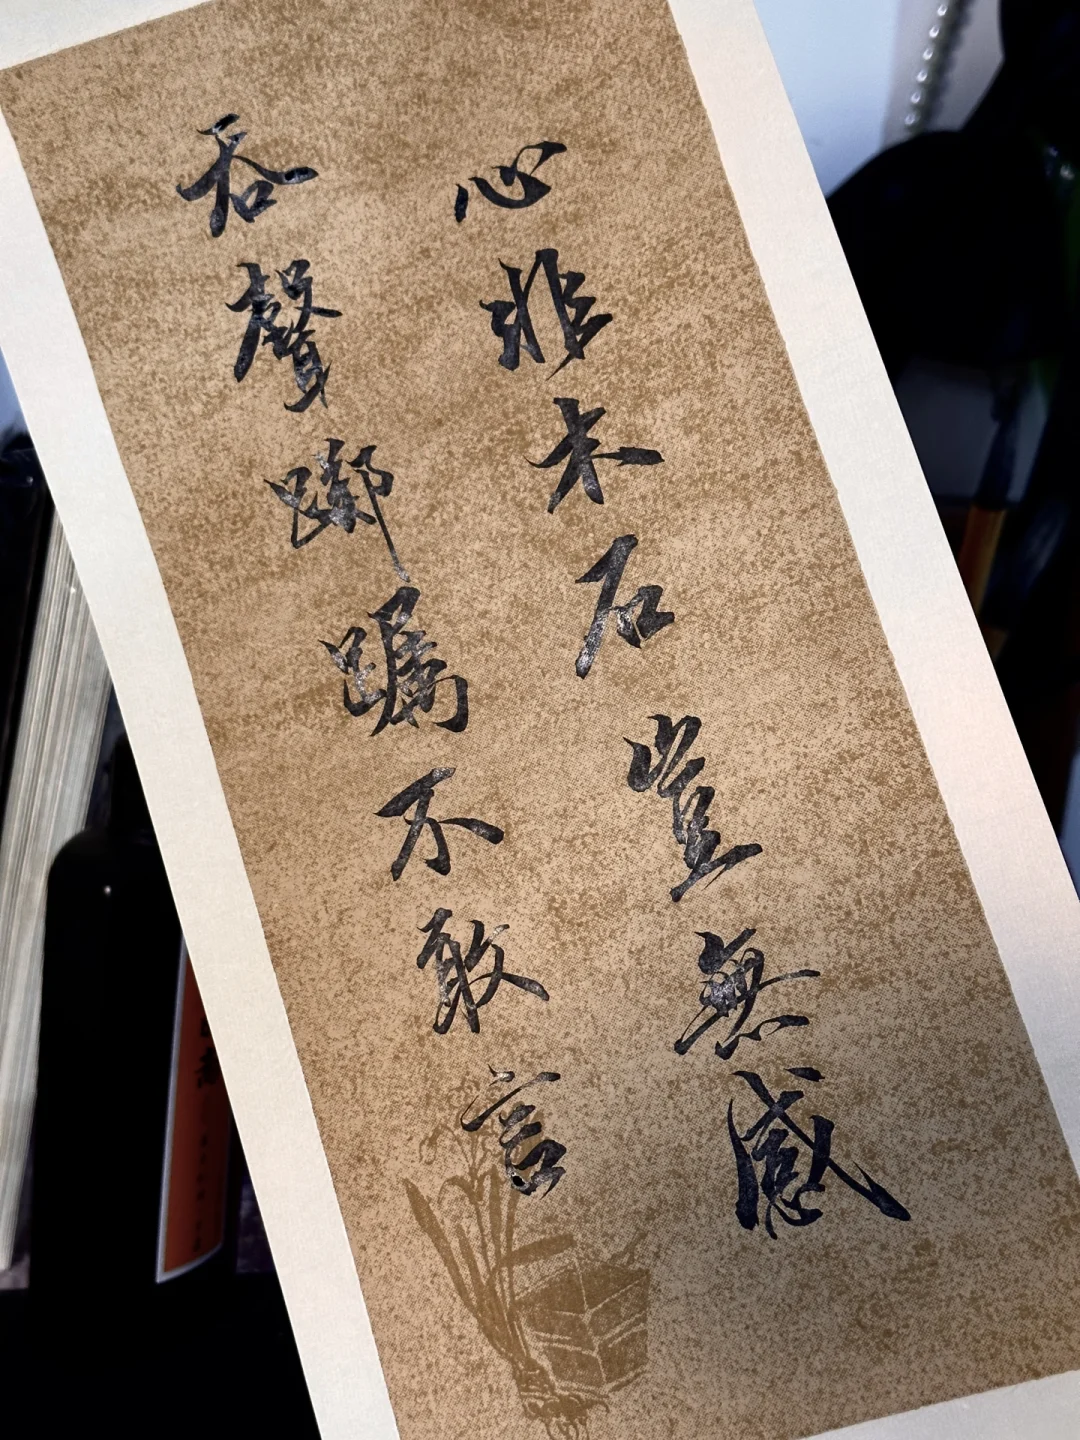 心非木石豈無感
吞聲躑躅不敢言